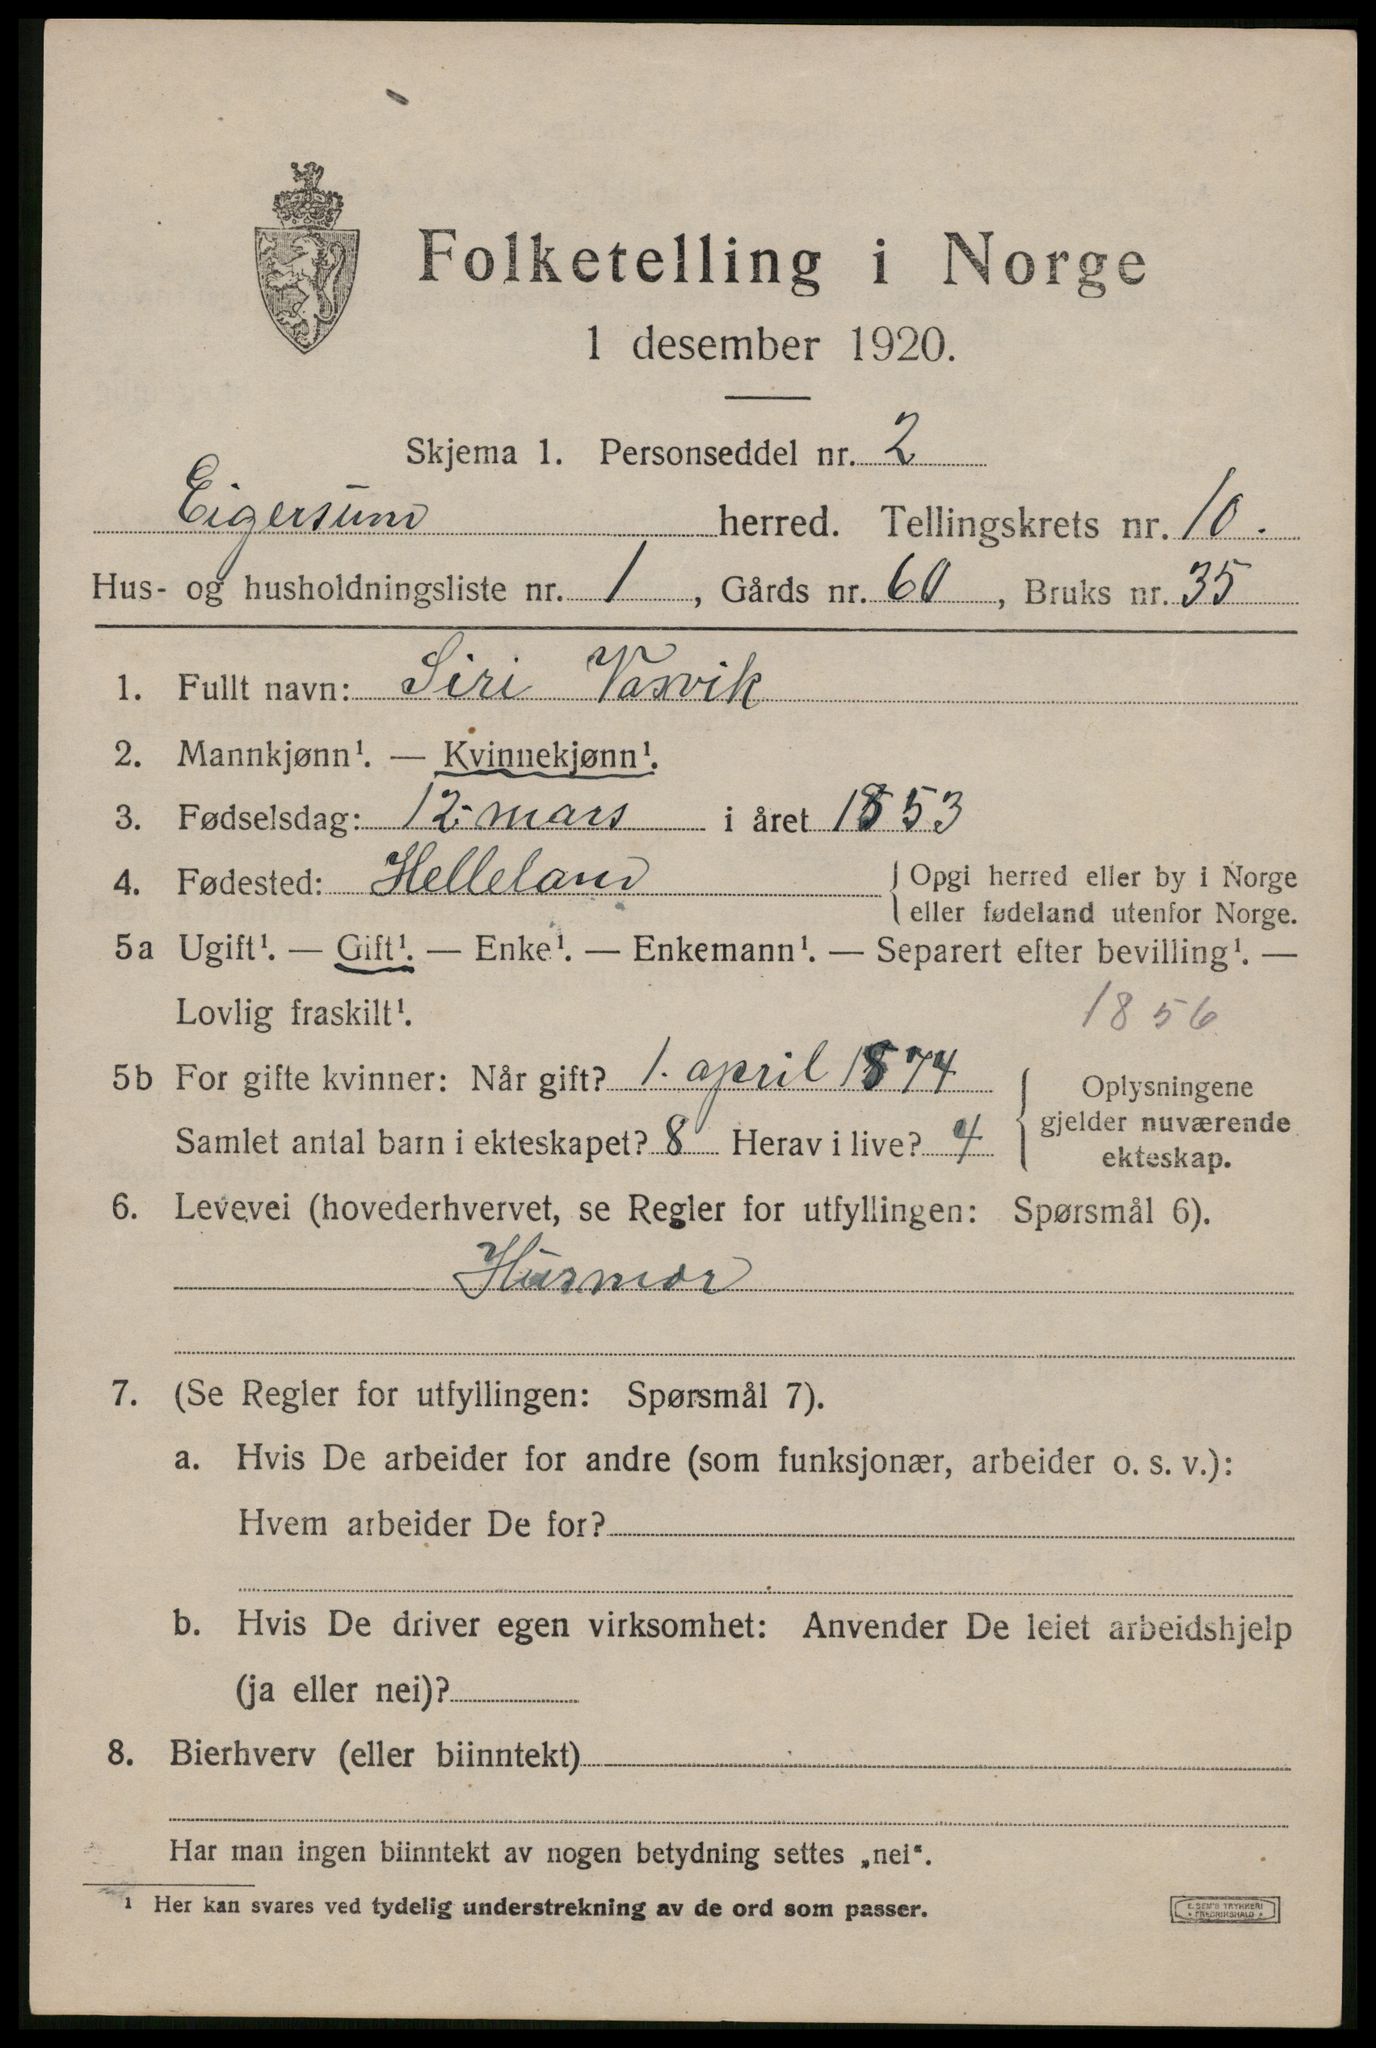 Folketelling i Norge
1 desember 1920.
Skjema 1. Personseddel nr. 2
Eigersund herred. Tellingskrets nr. 10.
Hus- og husholdningsliste nr. 1, Gårds nr. 60, Bruks nr. 35
1. Fullt navn: Siri Vasvik
2. Mannkjønn¹. — Kvinnekjønn¹.
3. Fødselsdag: 12. mars i året 1853
4. Fødested: Helleland { Opgi herred eller by i Norge
eller fødeland utenfor Norge.
5a Ugift¹. — Gift¹. — Enke¹. — Enkemann¹. — Separert efter bevilling¹. —
Lovlig fraskilt¹. 1856
5b For gifte kvinner: Når gift? 1. april 1874
Samlet antal barn i ekteskapet? 8 Herav i live? 4
{ Oplysningene
gjelder nuværende
ekteskap.
6. Levevei (hovederhvervet, se Regler for utfyllingen: Spørsmål 6).
Husmor
7. (Se Regler for utfyllingen: Spørsmål 7).
a. Hvis De arbeider for andre (som funksjonær, arbeider o. s. v.):
Hvem arbeider De for?
b. Hvis De driver egen virksomhet: Anvender De leiet arbeidshjelp
(ja eller nei)?
8. Bierhverv (eller biinntekt)
Har man ingen biinntekt av nogen betydning settes „nei“.
¹ Her kan svares ved tydelig understrekning av de ord som passer.
E. SEM'S TRYKKERI
* FREDRIKSHALD *